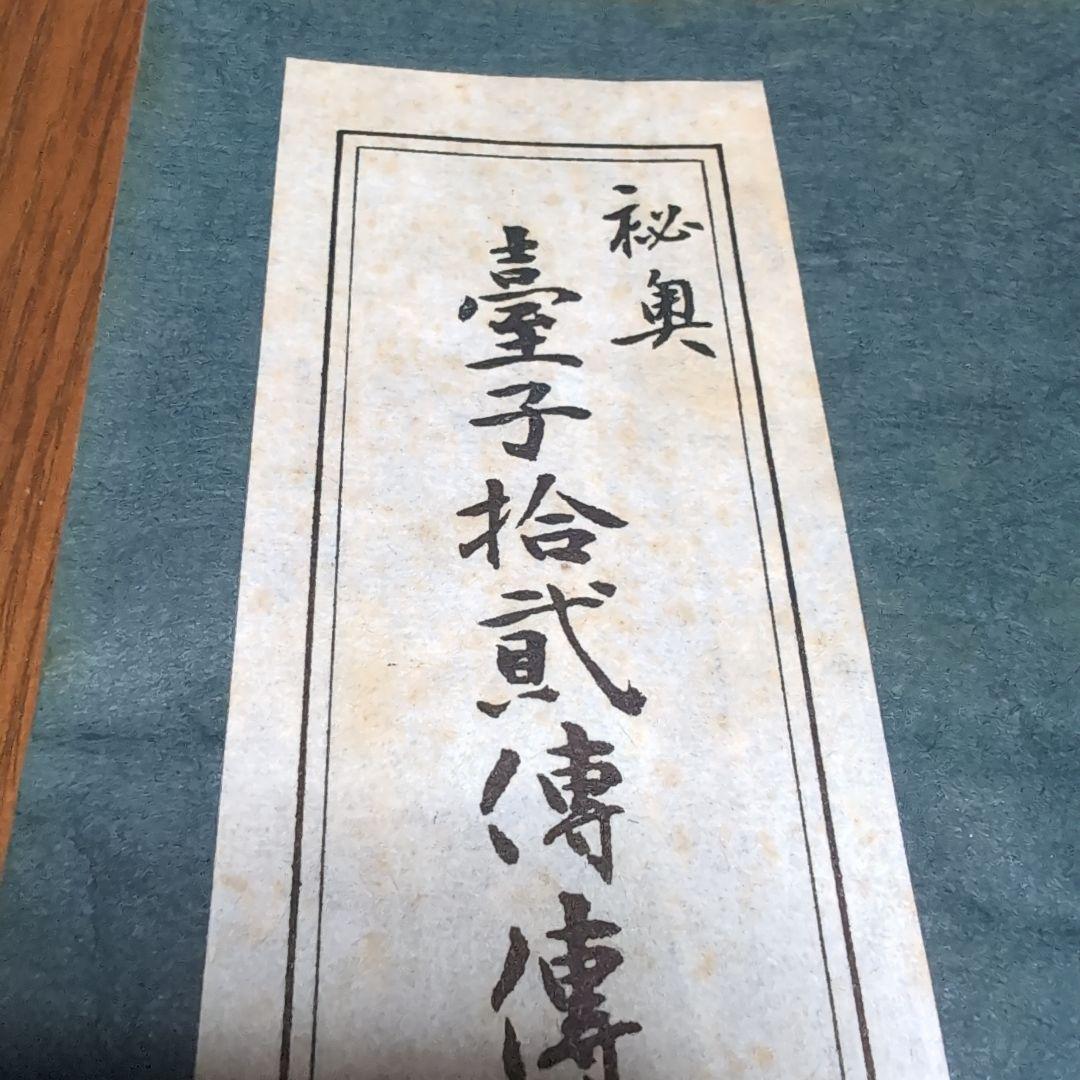 祕奥
臺子拾貳傳傳